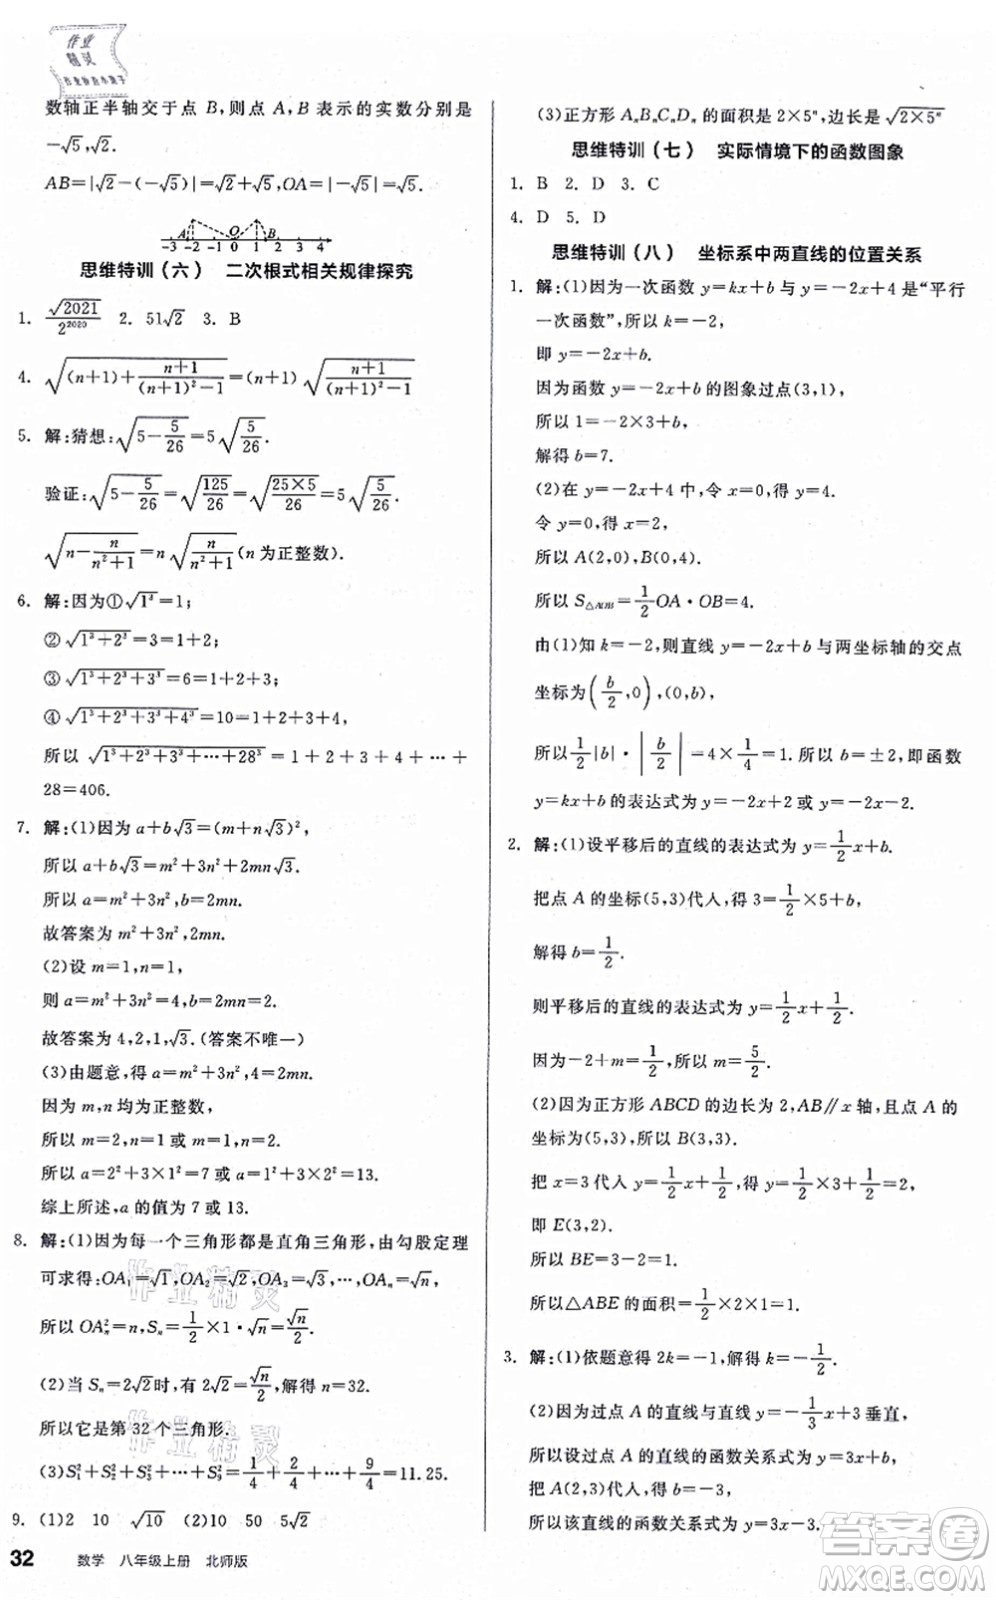 作业
精灵
数轴正半轴交于点 B,则点 A,B 表示的实数分别是
−√5,√2.
AB=|√2−(−√5)|=√2+√5,OA=|−√5|=√5.
A O B
-3 -2 -1 0 1 2 3 4
思维特训(六) 二次根式相关规律探究
1. √2021/2²⁰²⁰ 2. 51√2 3. B
4. √((n+1)+(n+1)/((n+1)²−1))=(n+1)√((n+1)/((n+1)²−1))
5. 解:猜想:√(5−5/26)=5√(5/26).
验证:√(5−5/26)=√(125/26)=√((25×5)/26)=5√(5/26).
√(n−n/(n²+1))=n√(n/(n²+1))(n 为正整数).
6. 解:因为①√(1³)=1;
②√(1³+2³)=3=1+2;
③√(1³+2³+3³)=6=1+2+3;
④√(1³+2³+3³+4³)=10=1+2+3+4,
所以 √(1³+2³+3³+…+28³)=1+2+3+4+…+
28=406.
7. 解:(1)因为 a+b√3=(m+n√3)²,
所以 a+b√3=m²+3n²+2mn√3.
所以 a=m²+3n²,b=2mn.
故答案为 m²+3n²,2mn.
(2)设 m=1,n=1,
则 a=m²+3n²=4,b=2mn=2.
故答案为 4,2,1,√3.(答案不唯一)
(3)由题意,得 a=m²+3n²,4=2mn.
因为 m,n 均为正整数,
所以 m=2,n=1 或 m=1,n=2.
所以 a=2²+3×1²=7 或 a=1²+3×2²=13.
综上所述,a 的值为 7 或 13.
8. 解:(1)因为每一个三角形都是直角三角形,由勾股定理
可求得:OA₁=√1,OA₂=√2,OA₃=√3,…,OAₙ=√n,
所以 OAₙ²=n,Sₙ=1/2×1·√n=√n/2.
(2)当 Sₙ=2√2时,有 2√2=√n/2,解得 n=32.
所以它是第 32 个三角形.
(3)S₁²+S₂²+S₃²+…+S₉²=1/4+2/4+…+9/4=11.25.
9. (1)2 10 √10 (2)10 50 5√2
32 数学 八年级上册 北师版
(3)正方形 AₙBₙCₙDₙ 的面积是 2×5ⁿ,边长是√(2×5ⁿ)
思维特训(七) 实际情境下的函数图象
1. B 2. D 3. C
4. D 5. D
思维特训(八) 坐标系中两直线的位置关系
1. 解:(1)因为一次函数 y=kx+b 与 y=−2x+4 是“平行
一次函数”,所以 k=−2,
即 y=−2x+b.
因为函数 y=kx+b 的图象过点(3,1),
所以 1=−2×3+b,
解得 b=7.
(2)在 y=−2x+4 中,令 x=0,得 y=4.
令 y=0,得 x=2,
所以 A(2,0),B(0,4).
所以 S△AOB=1/2OA·OB=4.
由(1)知 k=−2,则直线 y=−2x+b 与两坐标轴的交点
坐标为(b/2,0),(0,b),
所以1/2|b|·|b/2|=4×1/4=1.所以 b=±2,即函数
y=kx+b 的表达式为 y=−2x+2 或 y=−2x−2.
2. 解:(1)设平移后的直线的表达式为 y=1/2x+b,
把点 A 的坐标(5,3)代入,得 3=1/2×5+b,
解得 b=1/2.
则平移后的直线的表达式为 y=1/2x+1/2.
因为−2+m=1/2,所以 m=5/2.
(2)因为正方形 ABCD 的边长为 2,AB∥x 轴,且点 A 的
坐标为(5,3),所以 B(3,3).
把 x=3代入 y=1/2x+1/2,得 y=1/2×3+1/2=2,
即 E(3,2).
所以 BE=3−2=1.
所以△ABE 的面积=1/2×2×1=1.
3. 解:(1)依题意得 2k=−1,解得 k=−1/2.
(2)因为过点 A 的直线与直线 y=−1/3x+3 垂直,
所以设过点 A 的直线的函数关系式为 y=3x+b.
把 A(2,3)代入,得 b=−3,
所以该直线的函数关系式为 y=3x−3.
作业精灵
作业精灵
答案圈
MXQE.COM